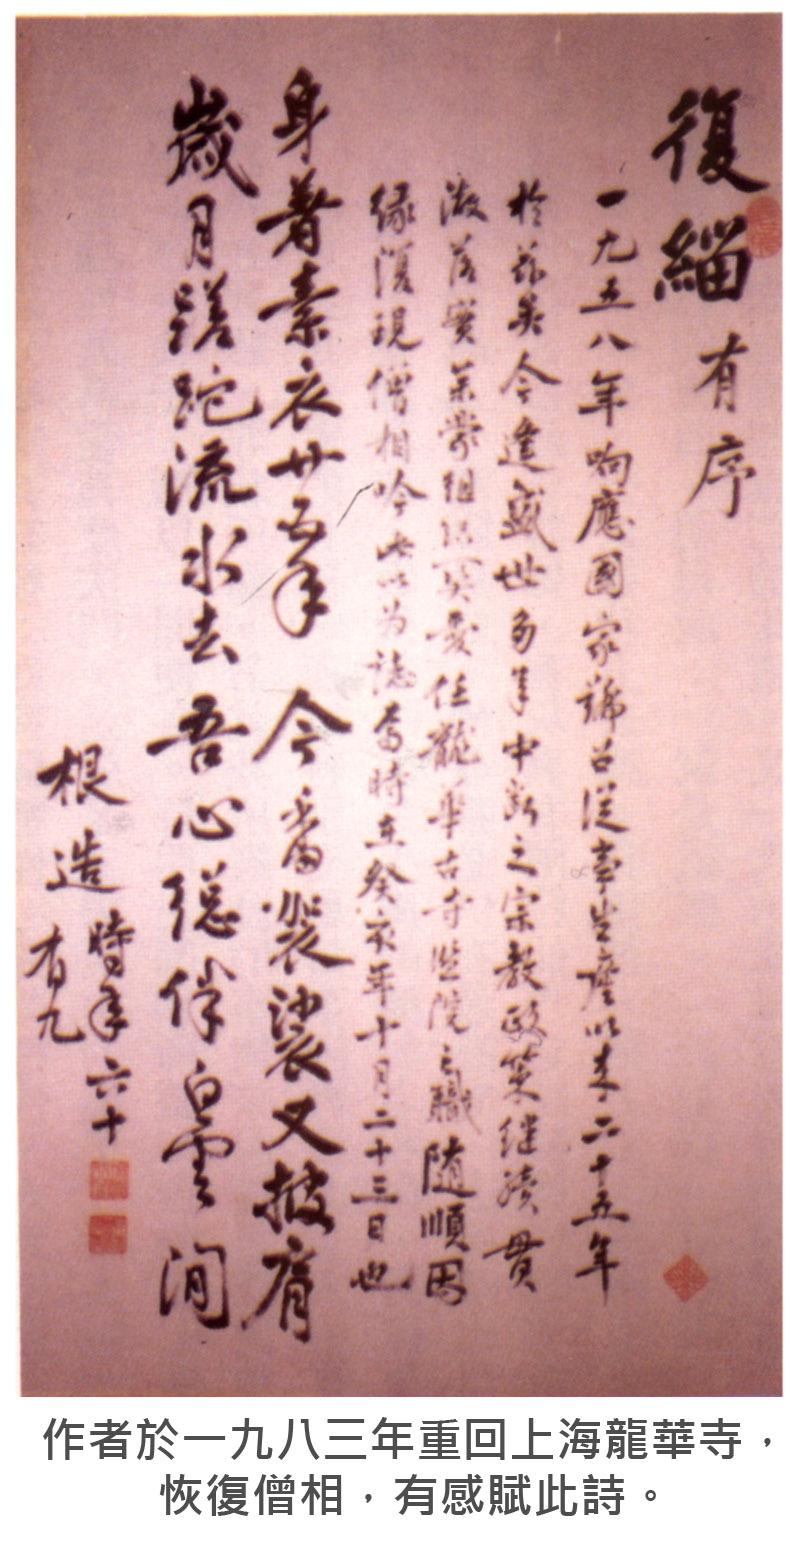 復緇有序
一九五八年响應國家號召從事生產以來二十五年
於茲矣今逢盛世多年中斷之宗教政策继续貫
澈落實并蒙组织关爱任龍華古寺监院之職随順因
缘復現僧相吟此以为誌焉時在癸亥年十月二十三日也
身著素衣廿五年今番袈裟又披肩
歲月蹉跎流水去吾心總伴白雲间
根造時年六十
有九
作者於一九八三年重回上海龍華寺，
恢復僧相，有感賦此詩。